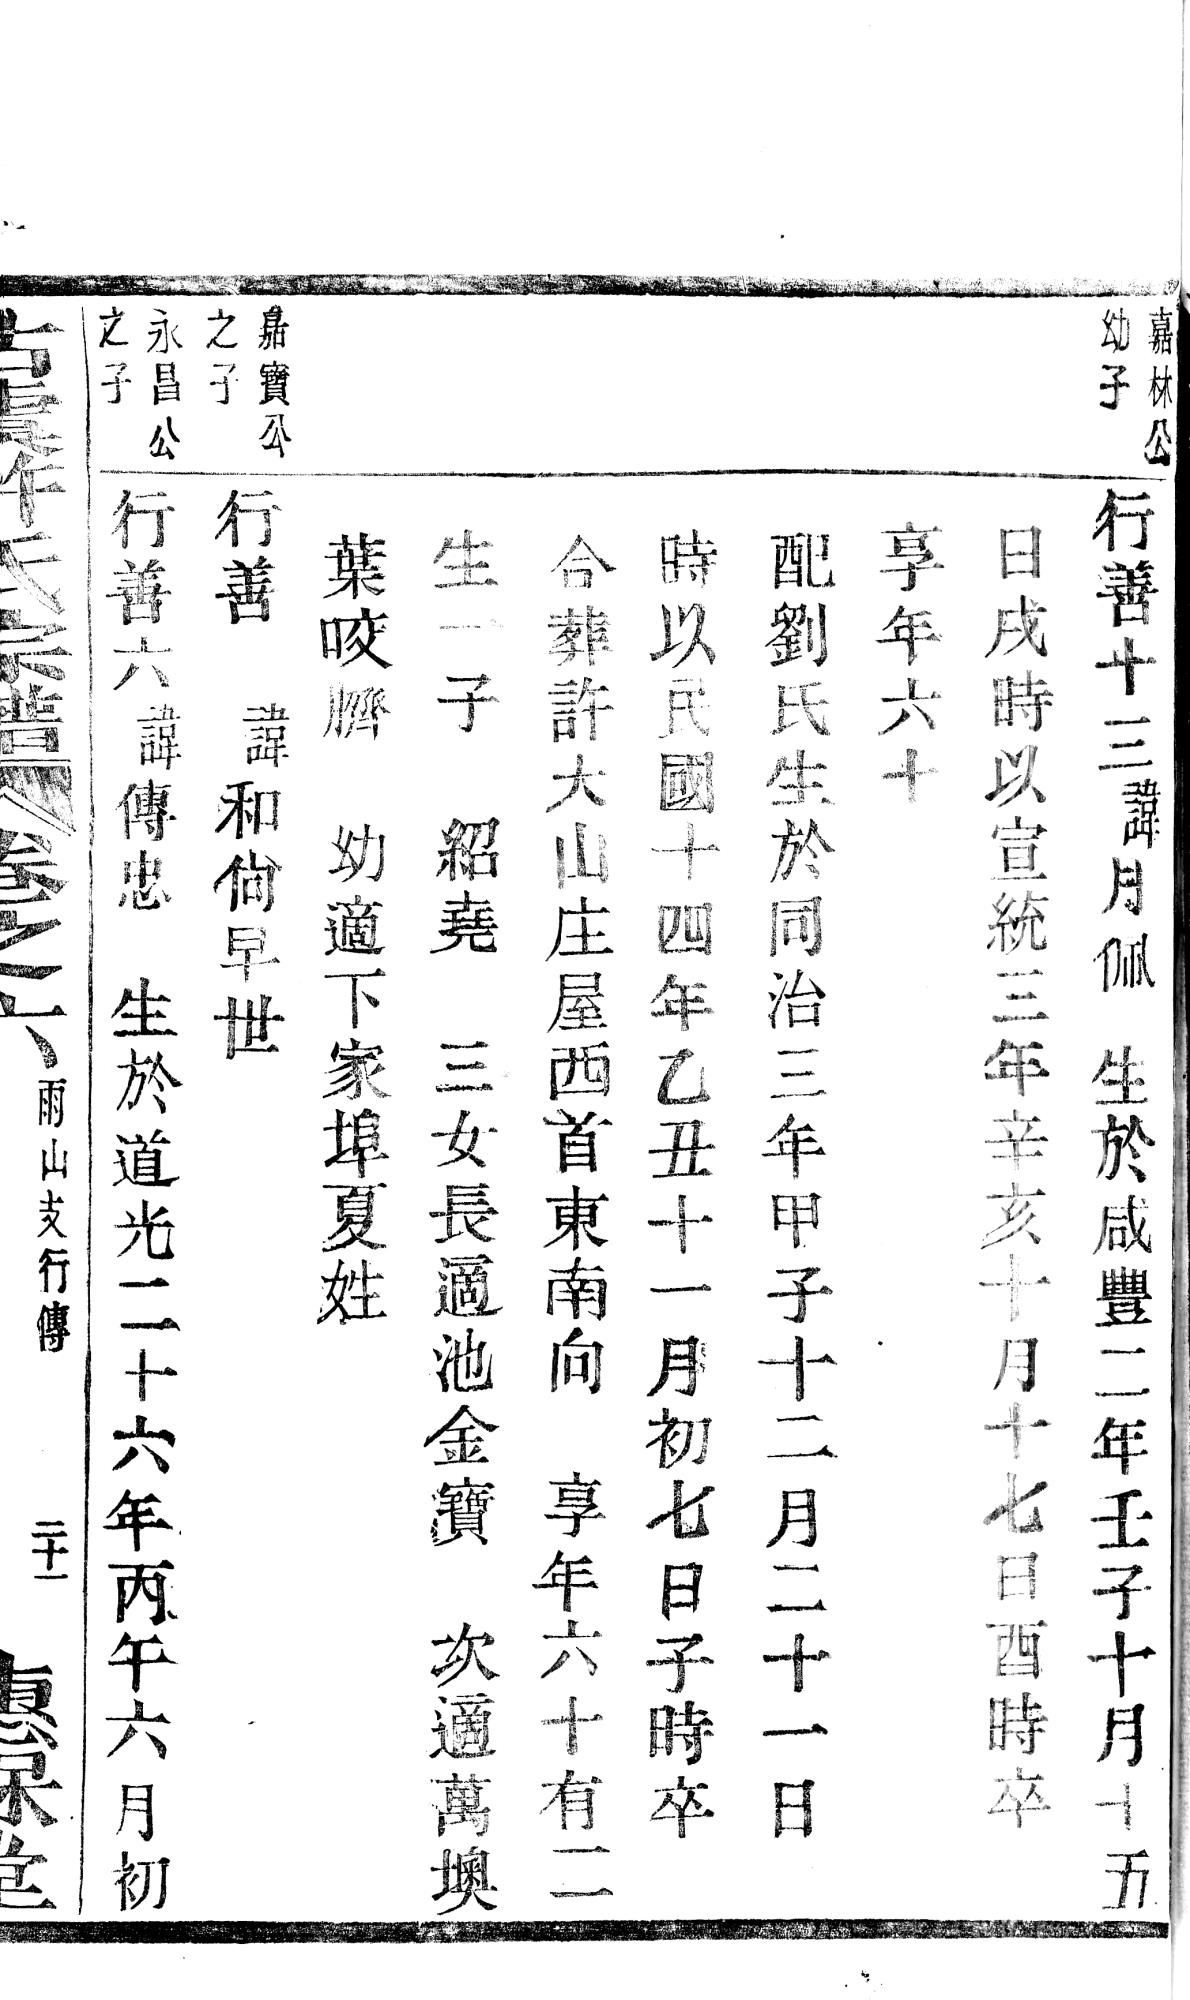 嘉林公
幼子
行善十三諱月佩　生於咸豐二年壬子十月十五
日戌時以宣統三年辛亥十月十七日酉時卒
享年六十
配劉氏生於同治三年甲子十二月二十一日
時以民國十四年乙丑十一月初七日子時卒
合葬許大山庄屋西首東南向　享年六十有二
生一子　紹堯　三女長適池金寶　次適萬墺
葉咬臍　幼適下家埠夏姓
嘉寶公
之子
行善　諱和尙早世
永昌公
之子
行善六諱傳忠　生於道光二十六年丙午六月初
氏宗譜卷之六　雨山支行傳　二十一　惠保堂